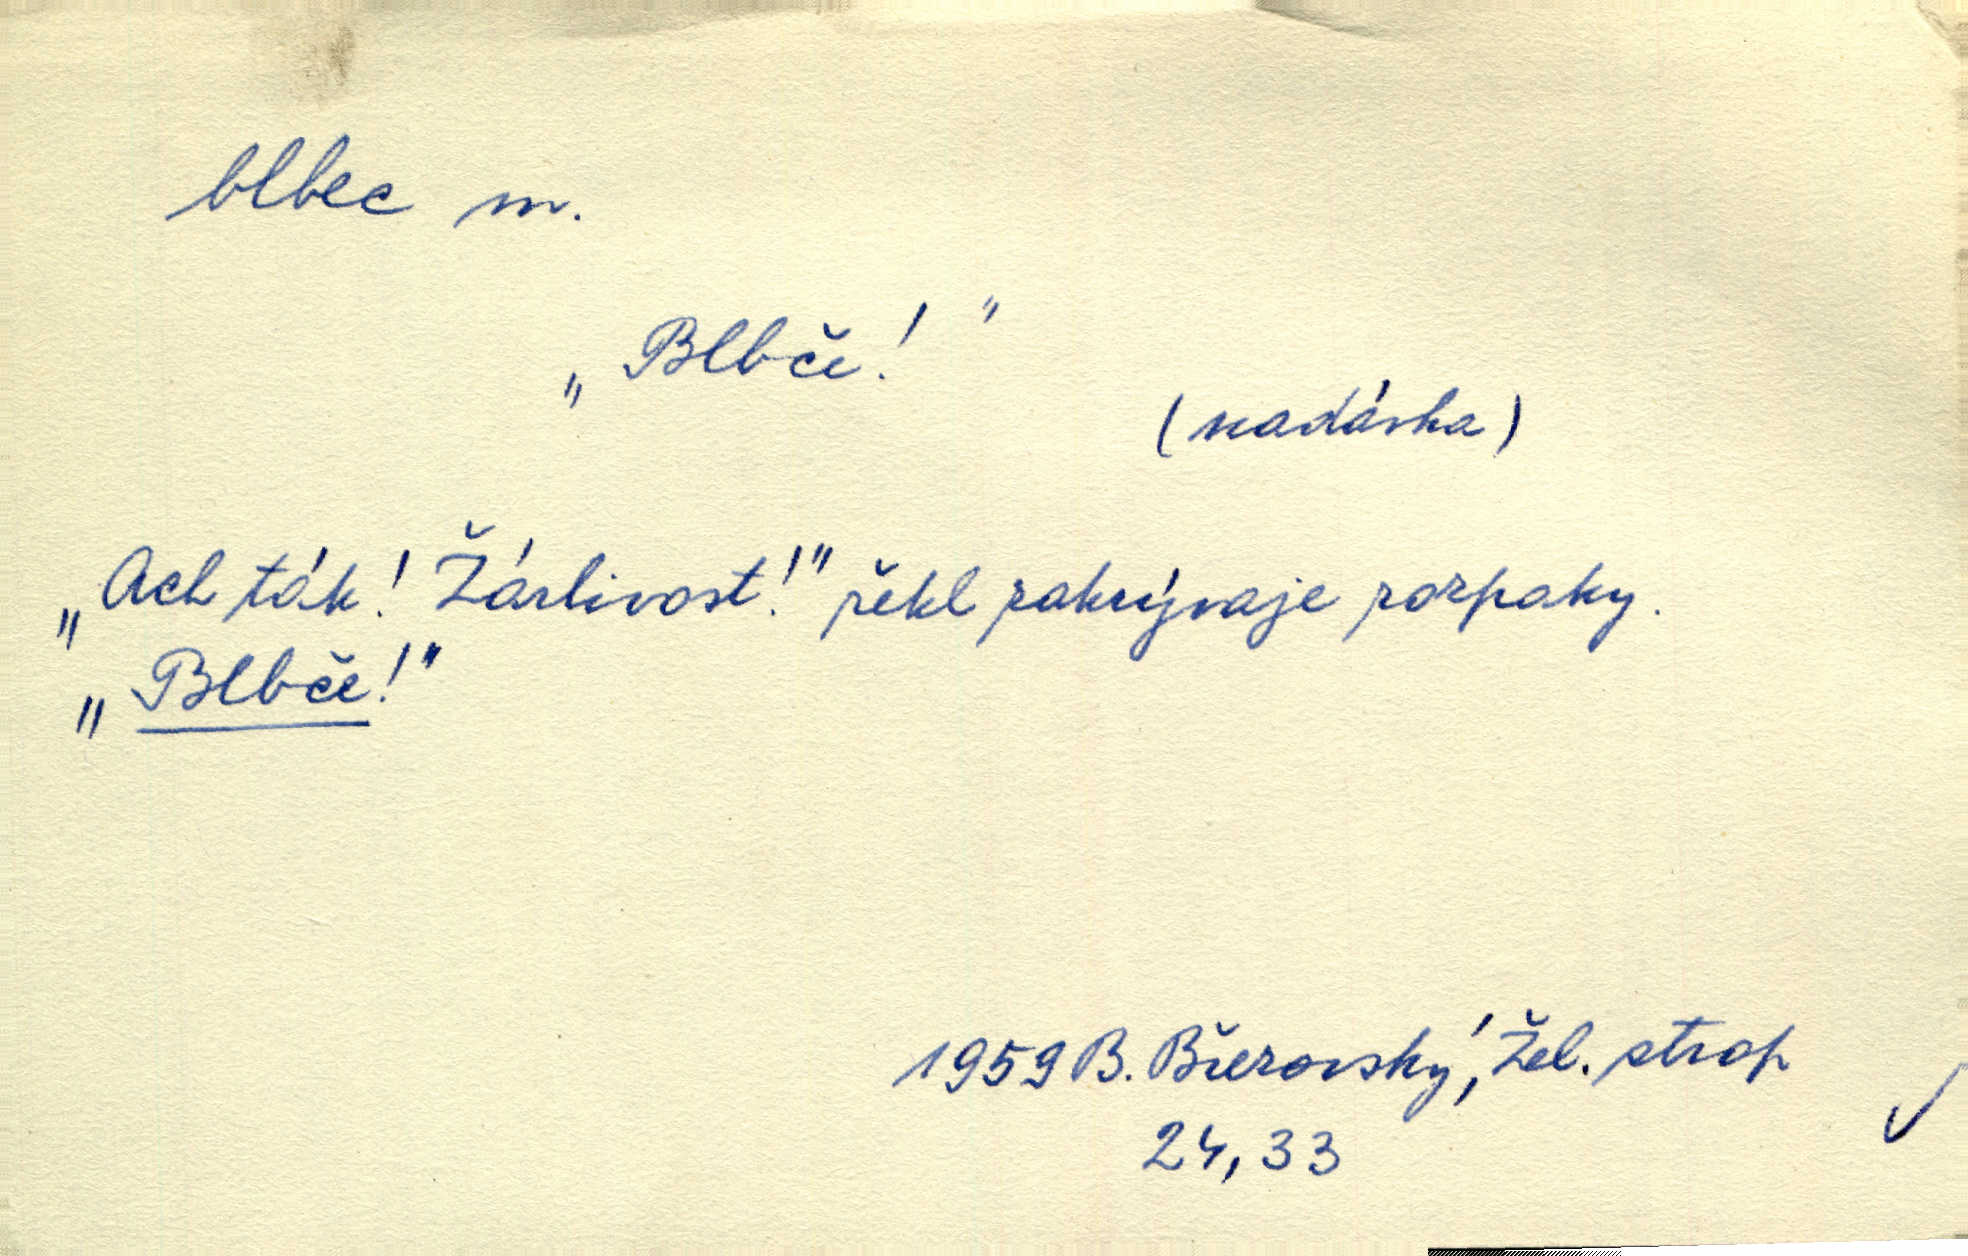 blbec m.
„Blbče!"
(nadávka)
„Ach ták! Žárlivost!" řekl zakrývaje rozpaky.
„Blbče!"
1959 B. Březovský, Žel. strop
24, 33